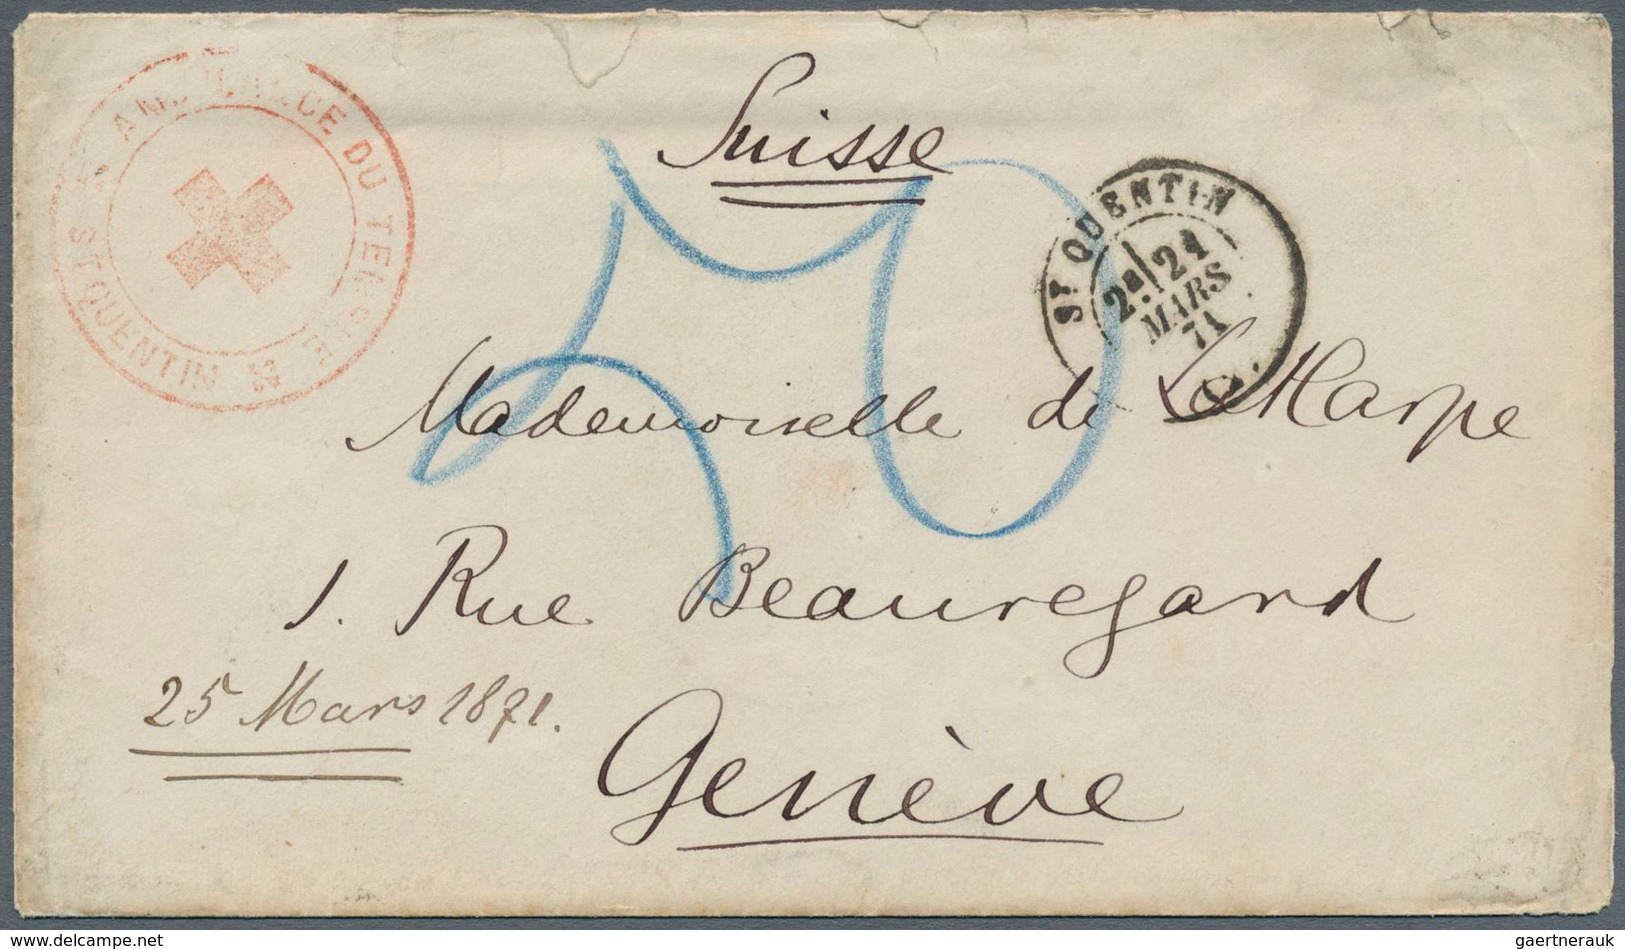 AMBULANCE DU TEMPLE
ST QUENTIN
Suisse
50
ST QUENTIN
2E 21
MARS
71
Mademoiselle de LaHarpe
1. Rue Beauregard
25 Mars 1871.
Genève
delcampe.net
gaertnerauk